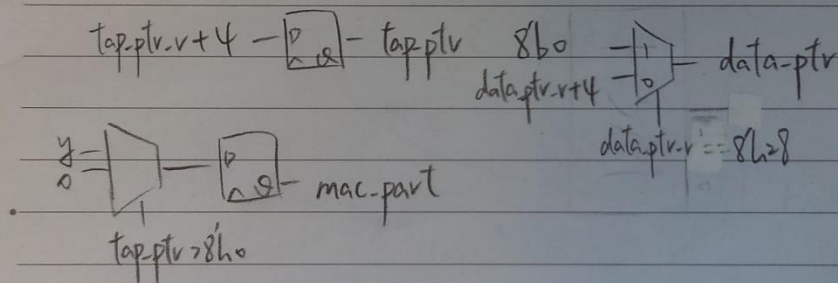 tap-ptr-r+4 D Q tap-ptr
8'b0 1 data-ptr
data-ptr-r+4 0
data-ptr-r == 8'h28
y D Q mac-part
0
tap-ptr>8'h0